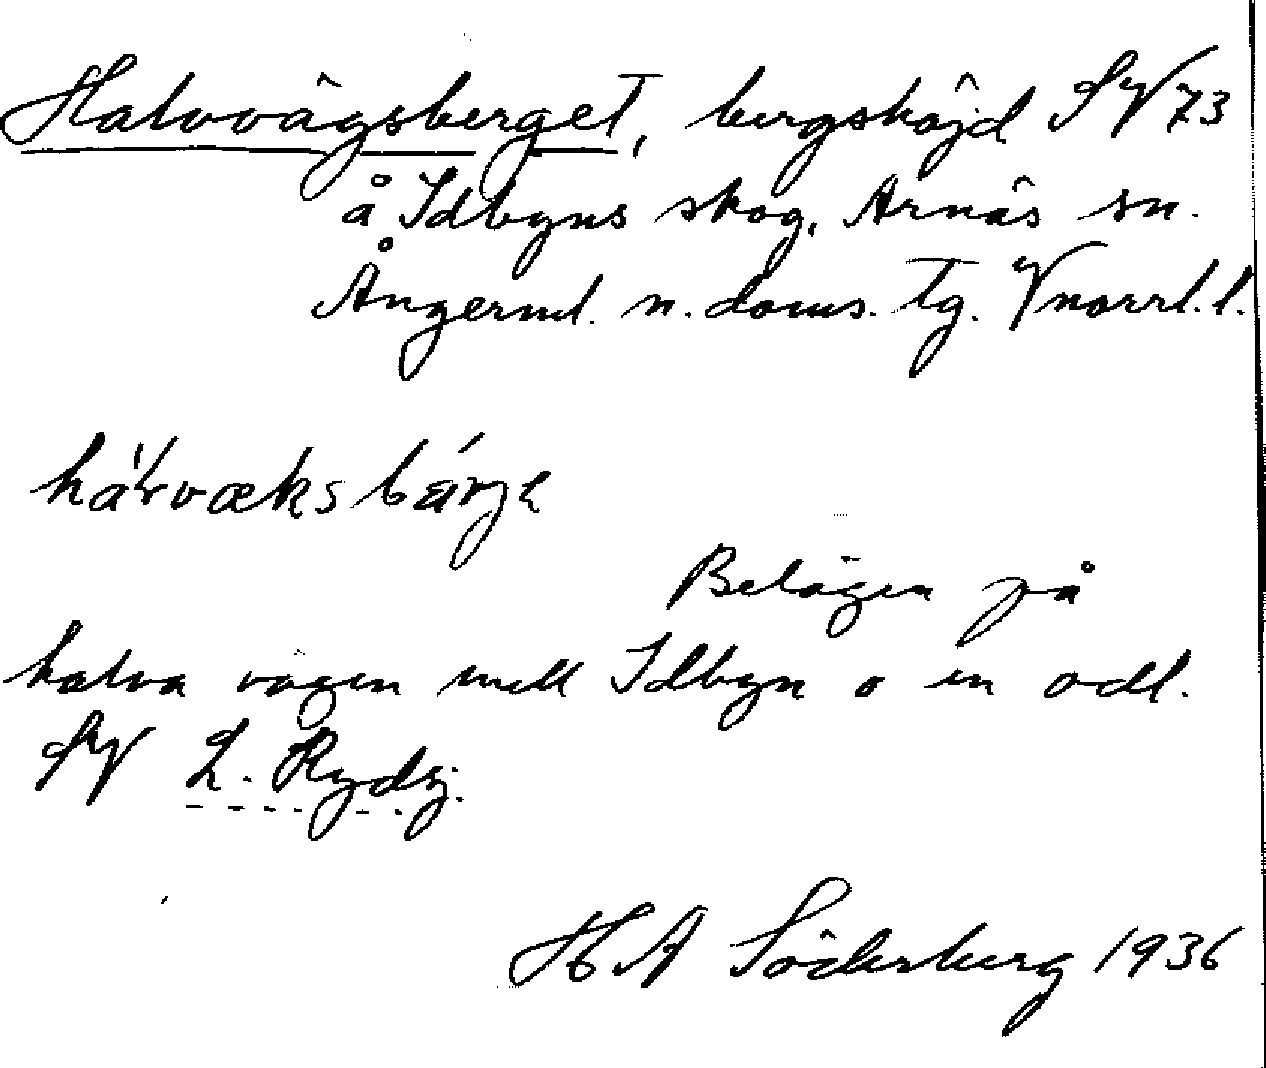 Halvvägsberget, bergshöjd SV 73
å Idbyns skog, Arnäs sn.
Ångerml. n. doms. tg. Vnorrl. l.
bárje
Belägen på
halva vägen mell Idbyn o en odl.
SV L. Rydsj.
H A Söderberg 1936